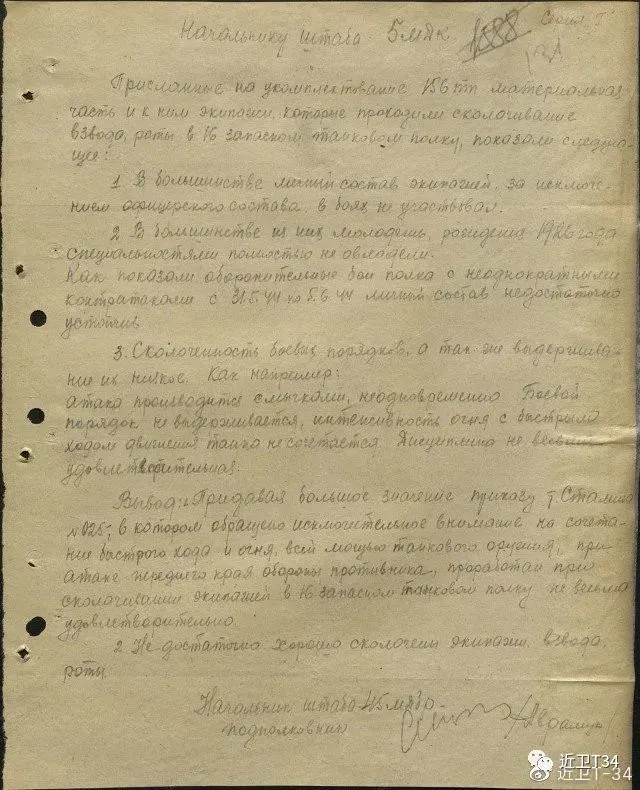 Серия "Г"
Начальнику штаба 5 мдк.
1888
131
Присланные на укомплектование 156 тп материальная
часть и к ним экипажи, которые проходили сколачивание
взвода, роты в 16 запасном танковом полку, показали следую-
щее:
1. В большинстве личный состав экипажей, за исключе-
нием офицерского состава, в боях не участвовал.
2. В большинстве из них молодежь, рождения 1926 года
специальностями полностью не овладели.
Как показали оборонительные бои полка с неоднократными
контратаками с 31.5.44 по 5.6.44 личный состав недостаточно
устойчив.
3. Сколоченность боевых порядков, а так же выдержива-
ние их низкое. Как например:
атака производится смычками, неодновременно. Боевой
порядок не выдерживается, интенсивность огня с быстрым
ходом движения танка не сочетается. Дисциплина не весьма
удовлетворительная.
Вывод: Придавая большое значение приказу т. Сталина
№ 025, в котором обращено исключительное внимание на сочета-
ние быстрого хода и огня, всей мощью танкового оружия, при
атаке переднего края обороны противника, проработан при
сколачивании экипажей в 16 запасном танковом полку не весьма
удовлетворительно.
2. Не достаточно хорошо сколочены экипажи, взвода,
роты.
Начальник штаба
подполковник
近卫T34
近卫T-34